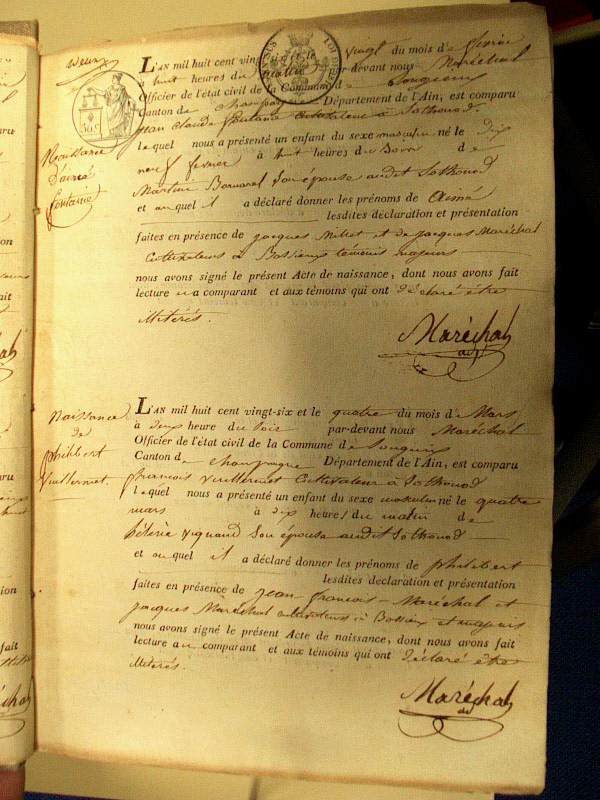 deux
Naissance
D'aimé
fontaine
L'AN mil huit cent vingt-six et le vingt du mois de février
à huit heures du matin par-devant nous Maréchal
Officier de l'état civil de la Commune de Songieu
Canton de champagne Département de l'Ain, est comparu
jean Claude fontaine cultivateur à Sothonod
lequel nous a présenté un enfant du sexe masculin né le dix
neuf fevrier à huit heures du Soir de
Martine Bonnard Son épouse audit Sothonod
et auquel il a déclaré donner les prénoms de Aimé
lesdites déclaration et présentation
faites en présence de jacques Millet et de jacques Maréchal
Cultivateurs à Bassieux témoins majeurs
nous avons signé le présent Acte de naissance, dont nous avons fait
lecture au comparant et aux témoins qui ont Déclaré être
illitérés.
Maréchal
adj
Naissance
de
philibert
Vuillermet
L'AN mil huit cent vingt-six et le quatre du mois de Mars
à deux heure du Soir par-devant nous Maréchal
Officier de l'état civil de la Commune de Songieu
Canton de champagne Département de l'Ain, est comparu
françois Vuillermet Cultivateur à Sothonod
lequel nous a présenté un enfant du sexe masculin né le quatre
mars à dix heures du matin de
Vignand Son épouse audit Sothonod
et auquel il a déclaré donner les prénoms de philibert
lesdites déclaration et présentation
faites en présence de jean-francois-Maréchal et
jacques Maréchal cultivateurs à Bassieux et majeurs
nous avons signé le présent Acte de naissance, dont nous avons fait
lecture au comparant et aux témoins qui ont Déclaré être
illitérés.
Maréchal
adj